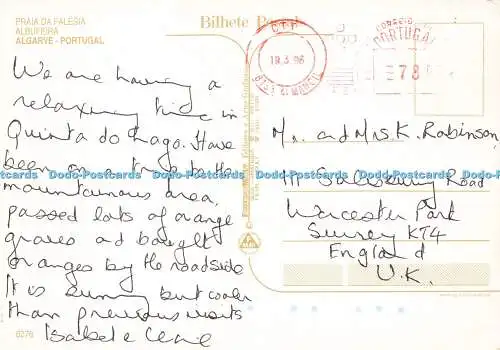 PRAIA DA FALÉSIA
ALBUFEIRA
ALGARVE - PORTUGAL
Bilhete Postal
We are having a
relaxing time in
Quinta do Lago. Have
been on a trip to the
mountainous area,
passed lots of orange
groves ad bought
oranges by the roadside
It is sunny but cooler
than previous visits
Isabel e
6276
CTT
19.3.96
CORREIO
PORTUGAL
78
Mr. and Mrs K. Robinson,
111 Salisbury Road
Worcester Park
Surrey KT4
England
U.K.
Dodo-Postcards Dodo-Postcards Dodo-Postcards Dodo-Postcards